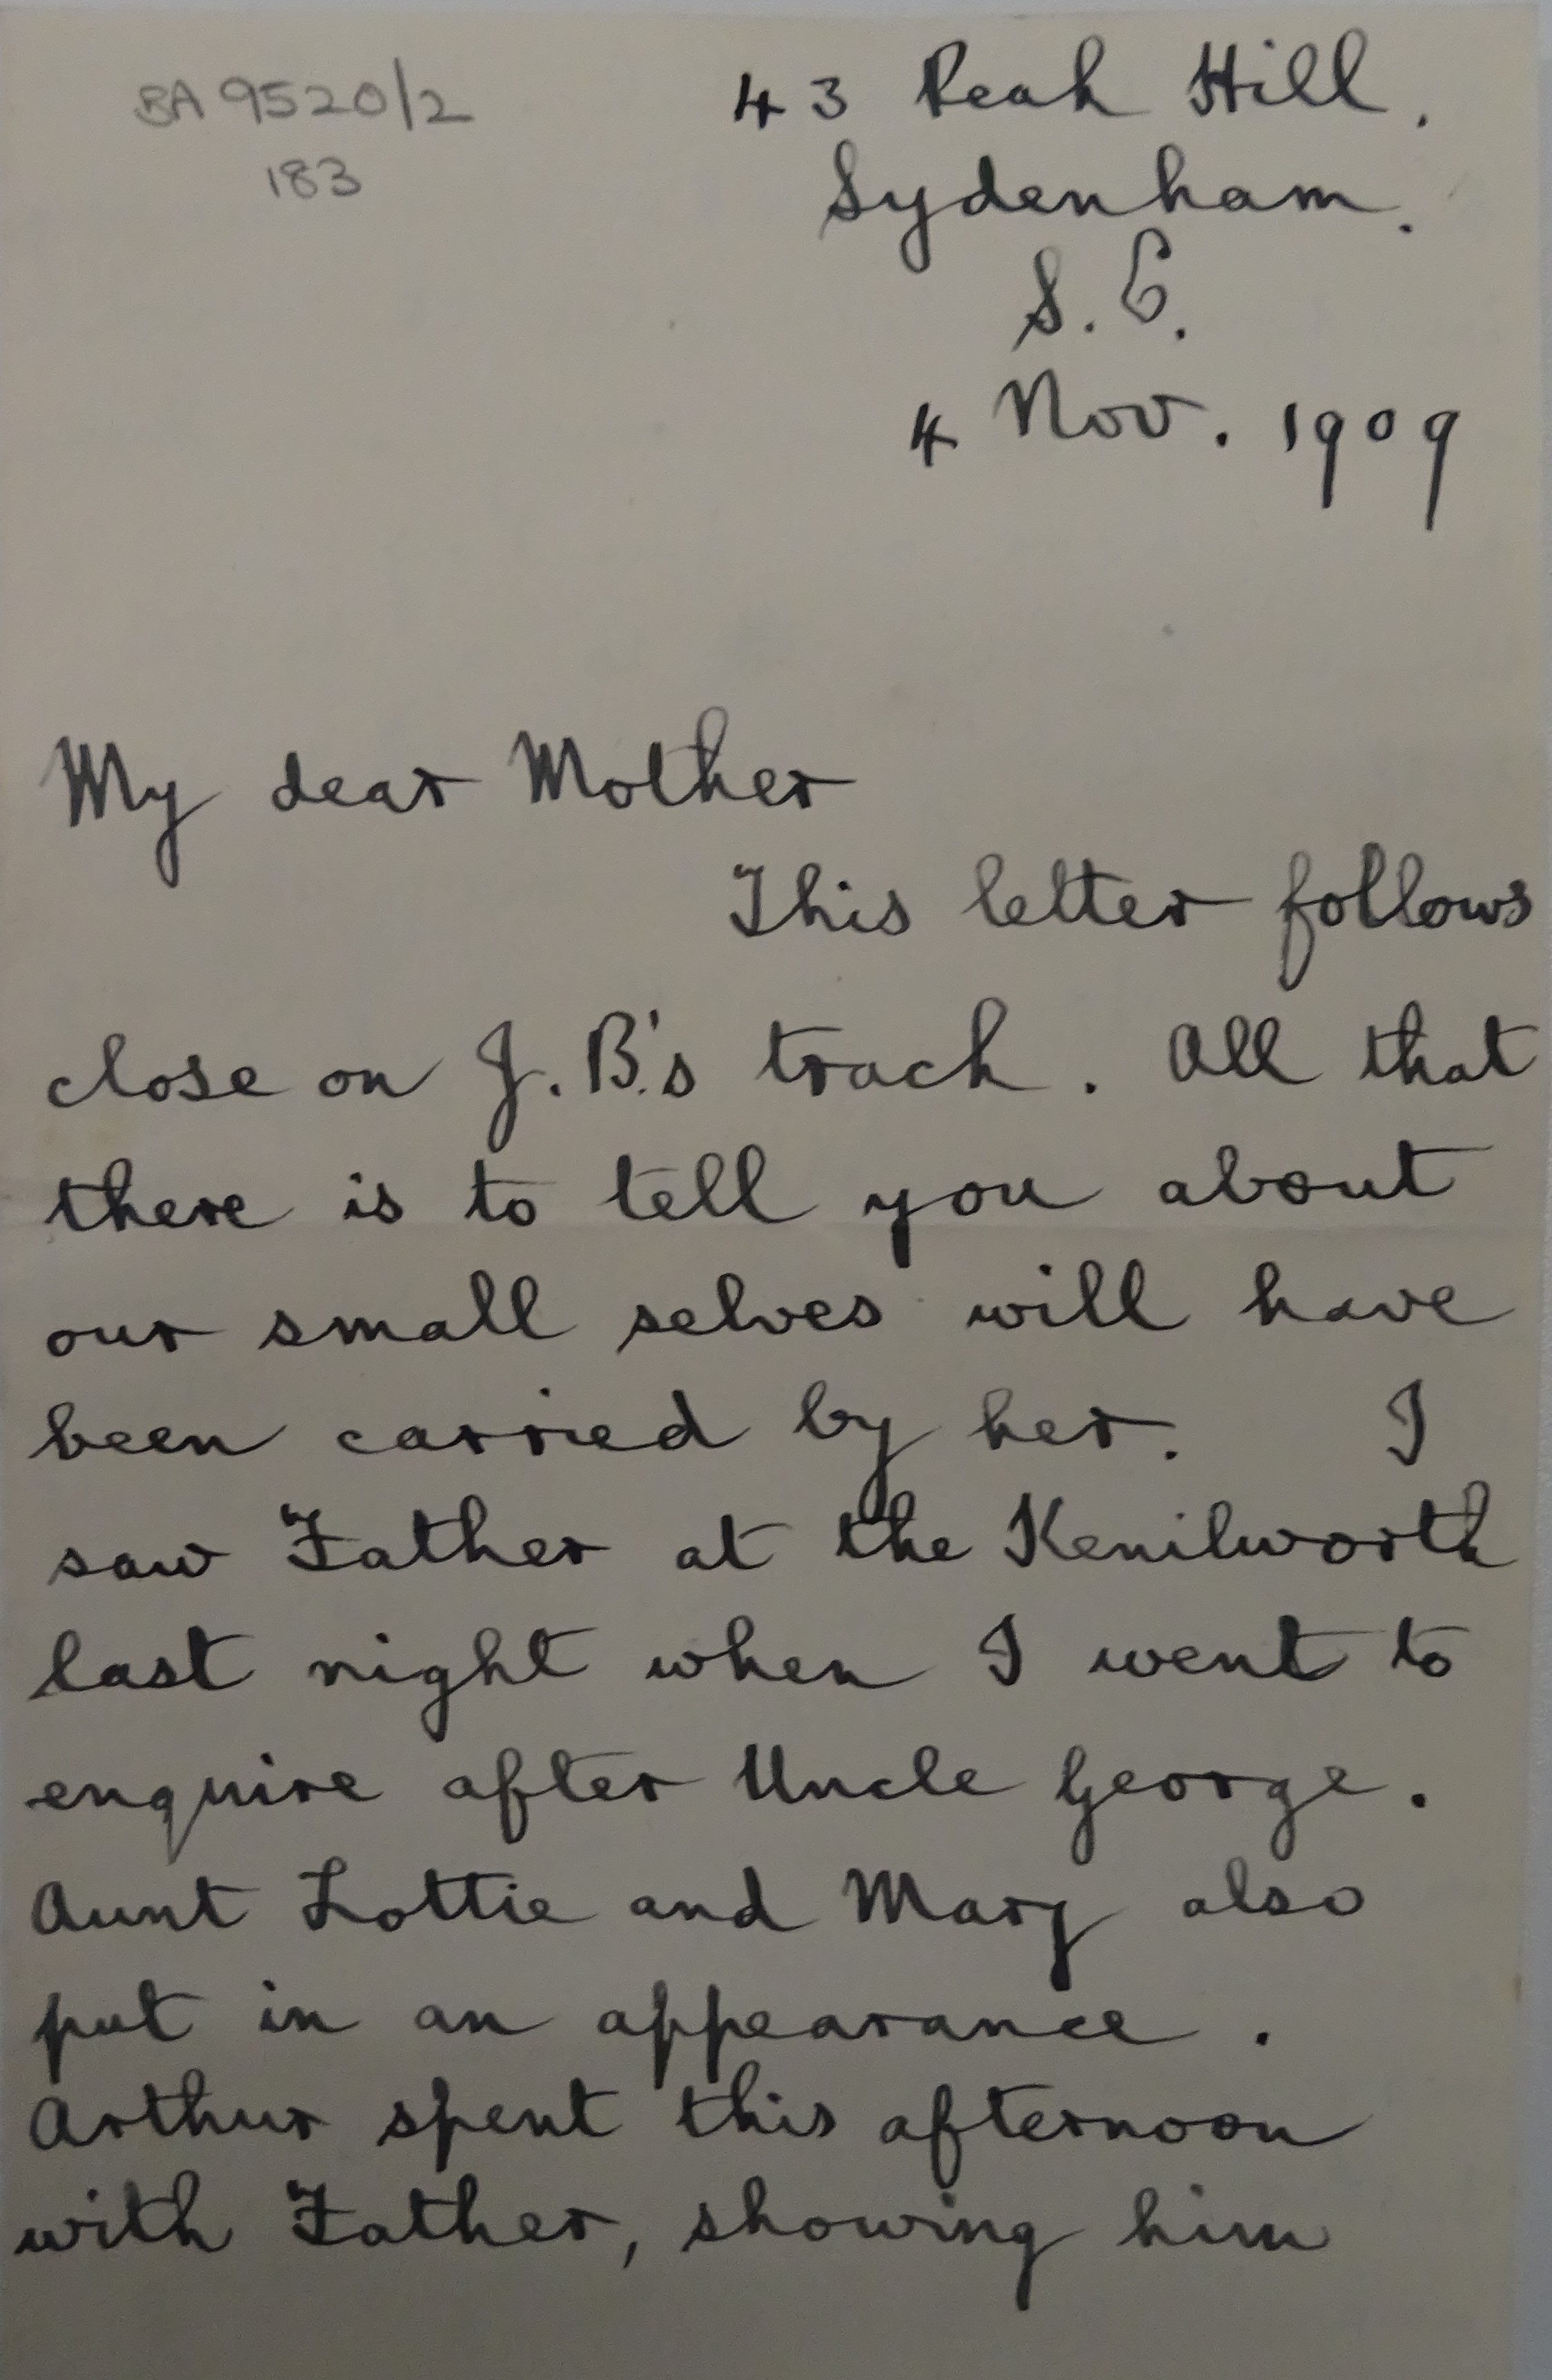 BA 9520/2
183
43 Peak Hill.
Sydenham.
S. E.
4 Nov. 1909
My dear Mother
This letter follows
close on J. B.'s track. All that
there is to tell you about
our small selves will have
been carried by her. I
saw Father at the Kenilworth
last night when I went to
enquire after Uncle George.
Aunt Lottie and Mary also
put in an appearance.
Arthur spent this afternoon
with Father, showing him